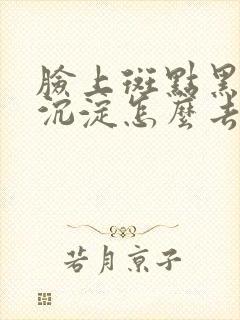 臉上斑點黑
沉淀怎麼去
若月京子